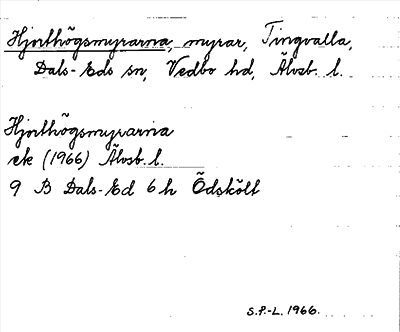 Hjorthögsmyrarna, myrar, Tingvalla,
Dals-Eds sn, Vedbo hd, Älvsb. l.
Hjorthögsmyrarna
ek (1966) Älvsb. l.
9 B Dals-Ed 6 h Ödskölt
S.P.-L. 1966.